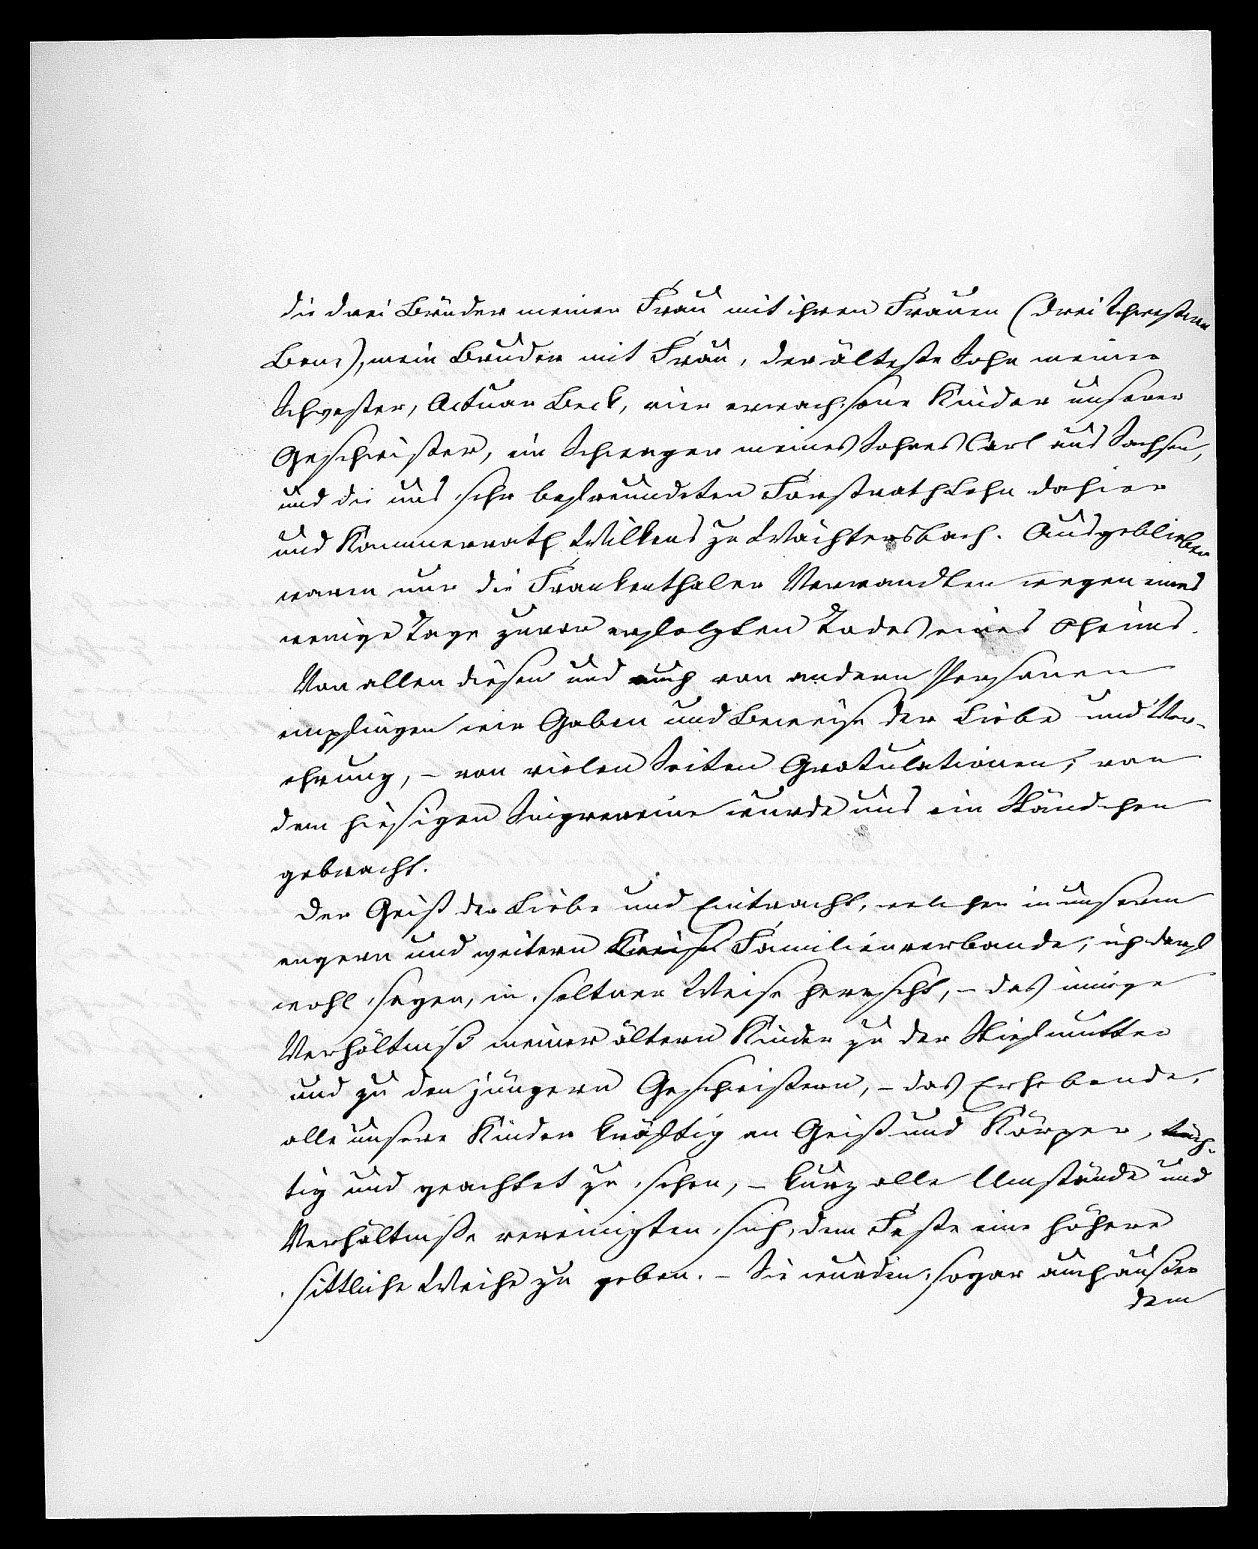 die drei Brüder meiner Frau mit ihren Frauen (drei Schwestern
), mein Bruder mit Frau, der älteste Sohn meiner
Schwester, Actuar Beck, vier erwachsene Kinder unserer
Geschwister, ein Schwager meines Sohnes Carl aus Sachsen,
und die uns sehr befreundeten Forstrath dahier
und Kammerrath Wilkens zu Wächtersbach. Ausgeblieben
waren nur die Frankenthaler Verwandten wegen eines
wenige Tage zuvor erfolgten Todes eines Oheims.
Von allen diesen und auch von andern Personen
empfingen wir Gaben und Beweise der Liebe und Ver-
ehrung, – von vielen Seiten Gratulationen; von
dem hiesigen Singvereine wurde uns ein Ständchen
gebracht.
Der Geist der Liebe und Eintracht, welcher in unserm
engern und weitern Kreise Familienverbande, ich darf
wohl sagen, in seltner Weise herrscht, – das innige
Verhältniß meiner ältern Kinder zu der Stiefmutter
und zu den jüngern Geschwistern, – das Erhebende,
alle unsere Kinder kräftig an Geist und Körper, tüch-
tig und geachtet zu sehen, – kurz alle Umstände und
Verhältniße vereinigten sich, dem Feste eine höhere
sittliche Weihe zu geben. – Sie wurden sogar auch außer
dem